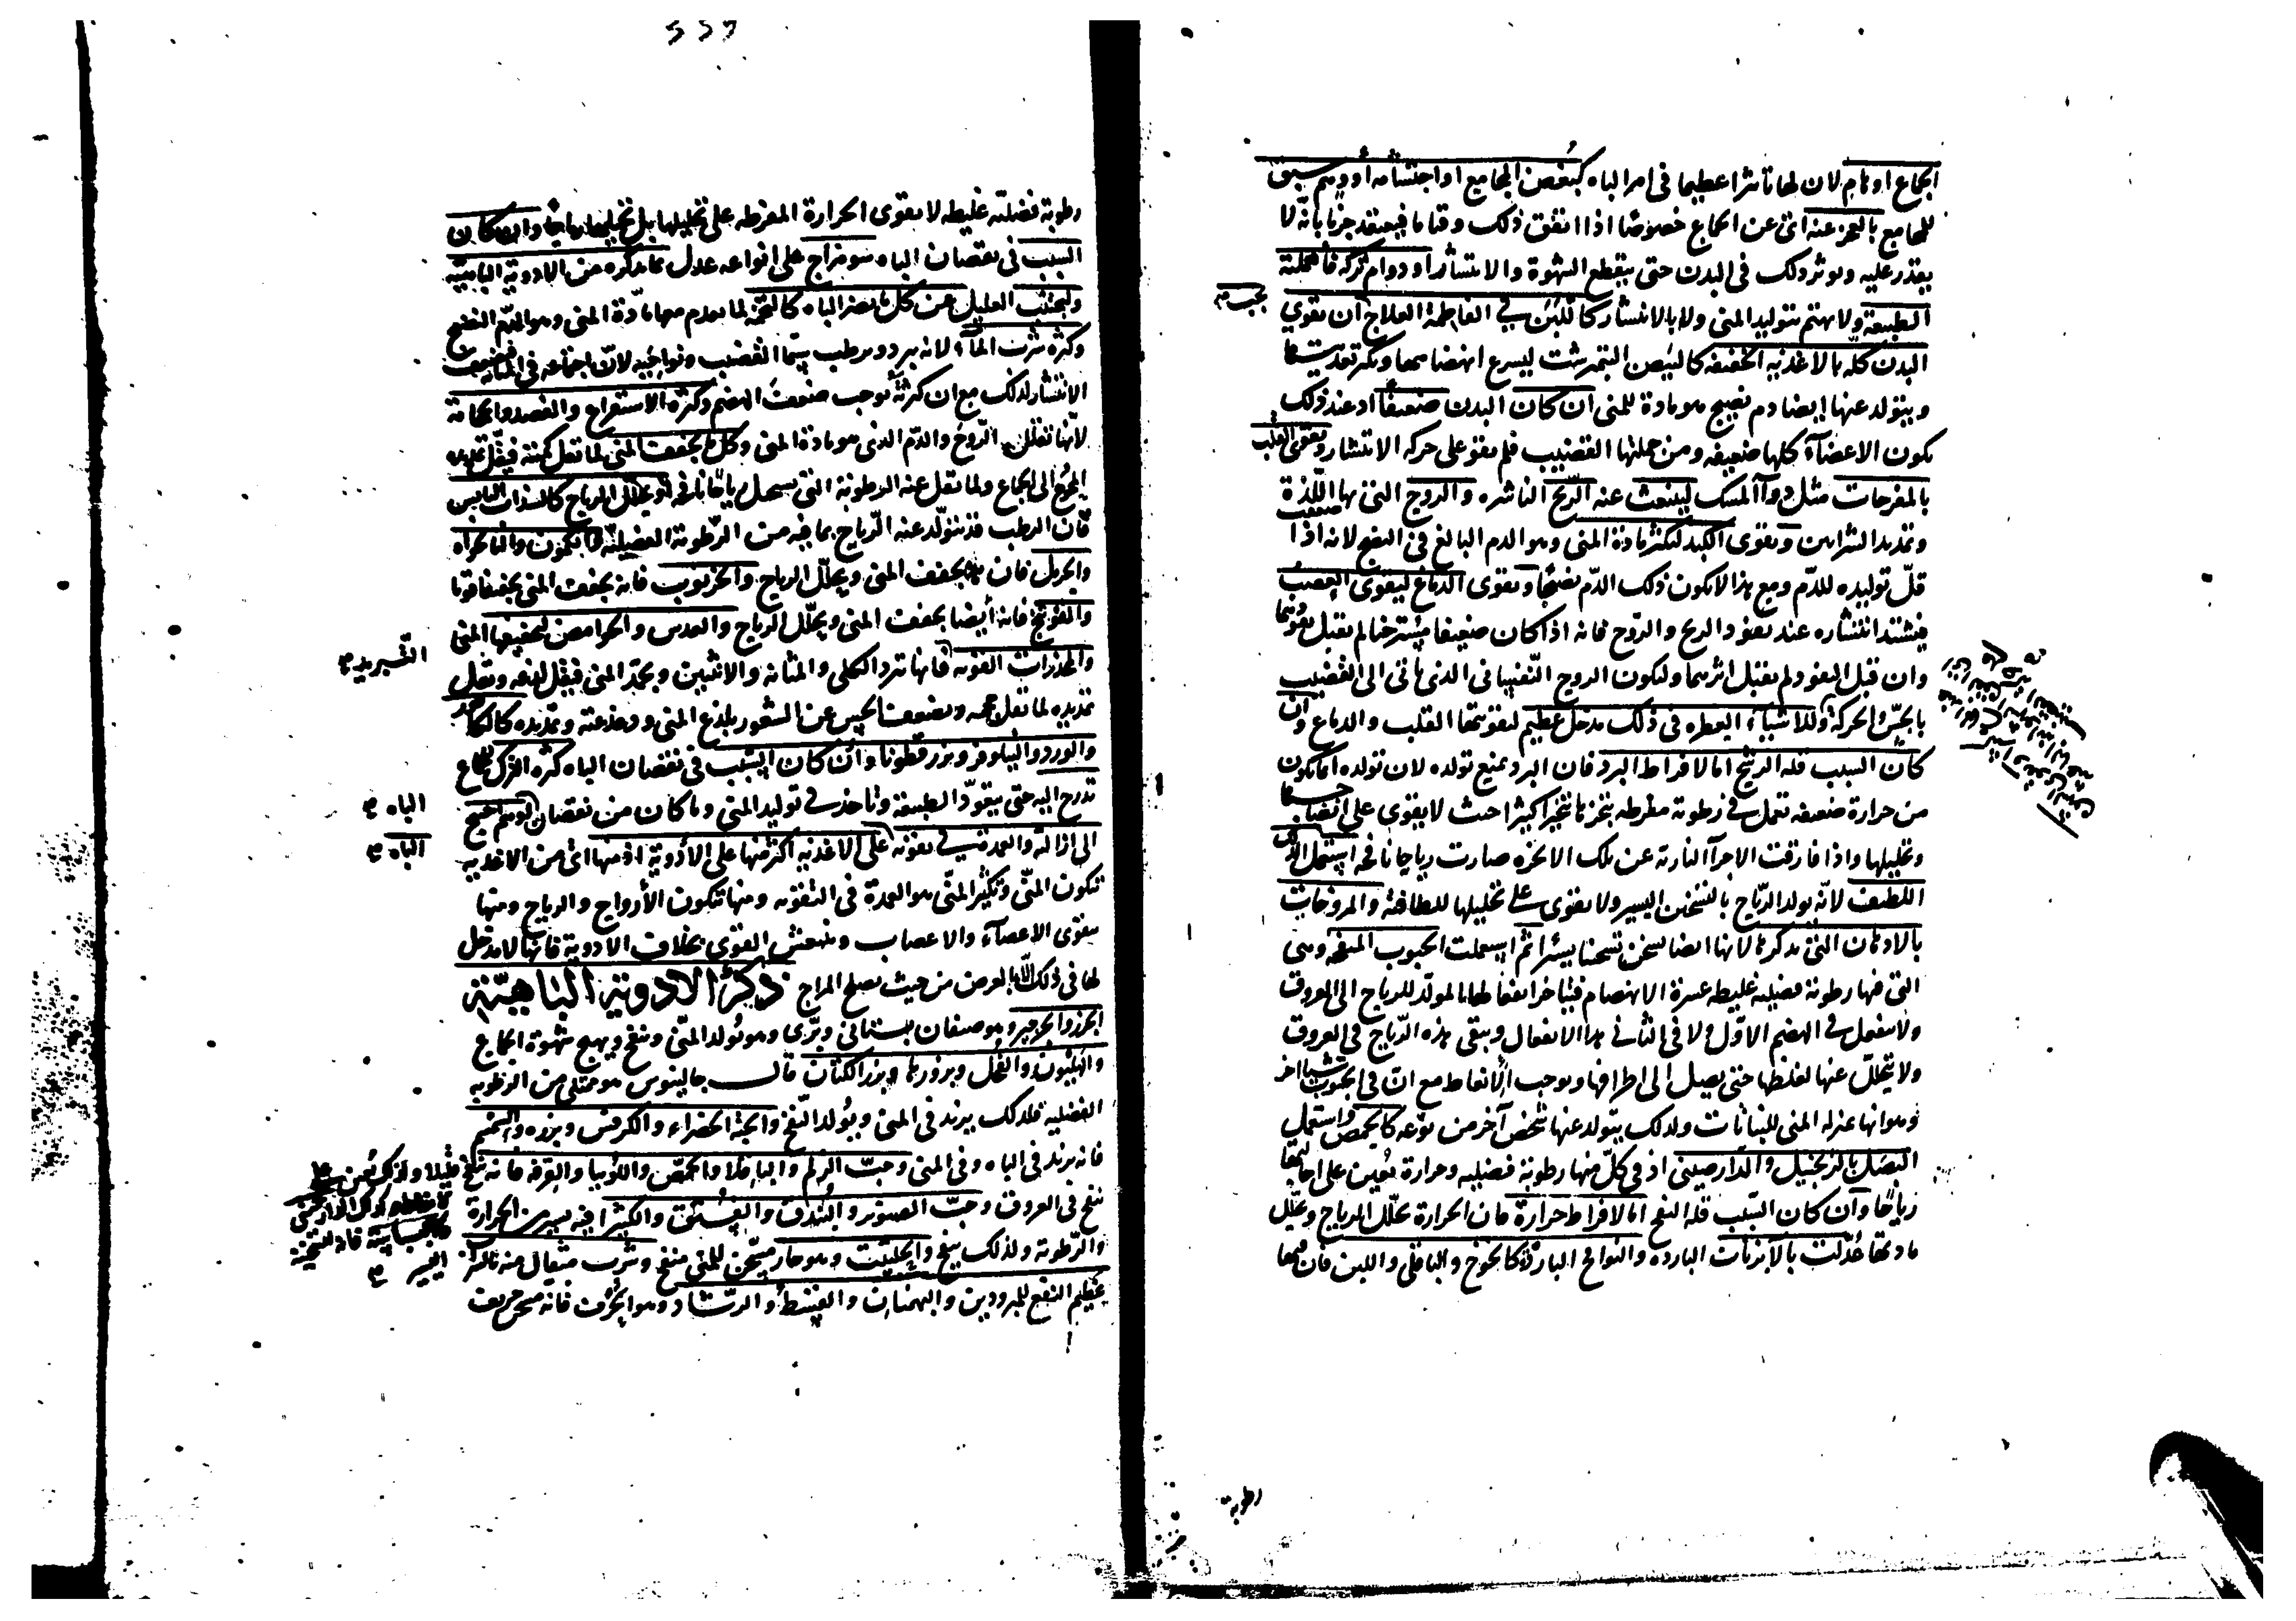 الجماع او نام لان لها تاثيرا عظيما فى امر الباه كبغض المجامع او احتشامه او وهم سبق
للمجامع بالعجز عنه اى عن الجماع خصوصًا اذا اتفق ذلك وقتا ما فيعتقد جزما بانه لا
يقدر عليه ويوثر ذلك فى البدن حتى ينقطع الشهوة والانتشار او دوام تركه فاهملته
الطبيعة ولا يهتم بتوليد المنى ولا بالانتشار كاللبن فى الفاطمة العلاج ان يقوي
يجب
البدن كله بالاغذيه الخفيفه كالبيض النيمرشت ليسرع انهضامها ويكثر تغذيتها
ويتولد عنها ايضا دم نضيج هو مادة للمنى ان كان البدن ضعيفًا اذ عند ذلك
يكون الاعضاء كلها ضعيفه ومن جملتها القضيب فلم يقو على حركه الانتشار ويقوى القلب
بالمفرحات مثل دواء المسك لينبعث عنه الريح الناشره والروح التى بها اللذة
وتمديد الشرايين ويقوى الكبد ليكثر مادة المنى وهو الدم البالغ فى النضج لانه اذا ضعفت
قل توليده للدم ومع هذا لا يكون ذلك الدم نضيجا ويقوى الدماغ ليقوى العصب
فيشتد انتشاره عند نفوذ الريح والروح فانه اذا كان ضعيفا مسترخيا لم يقبل نفوذهما
وان قبل النفوذ لم يقبل اثرهما وليكون الروح النفسانى الذى ياتى الى القضيب
بالحس والحركة وللاشياء العطره فى ذلك مدخل عظيم لتقويتها القلب والدماغ وان
كان السبب قله الريح اما لافراط البرد فان البرد يمنع تولده لان تولده انما يكون
من حرارة ضعيفه تعمل فى رطوبة مفرطه بتبخرها تبخيرا كثيرا حيث لا يقوى على انضاجها
وتحليلها واذا فارقت الاجزآ النارية عن تلك الابخره صارت رياحا نافخه استعمل
اللطيف لانه يولد الرياح بالتسخين اليسير ولا يقوى على تحليلها للطافته والمروخات
بالادهان التى نذكرها لانها ايضا تسخن تسخينا يسيرا ثم استعملت الحبوب المنفخه وهى
التى فيها رطوبة فضليه غليظه عسرة الانهضام فيتاخر انفعالها المولد للرياح الى العروق
ولا ينفعل فى الهضم الاول ولا فى الثانى هذا الانفعال ويبقى هذه الرياح فى العروق
ولا يتحلل عنها لغلظها حتى يصل الى اطرافها ويوجب الانعاظ مع ان فى الحبوب شيئا اخر
وهو انها بمنزله المنى للنباتات ولذلك يتولد عنها شخص آخر من نوعه كالحمص واستعمل
البصل بالزنجبيل والدارصينى اذ فى كل منها رطوبة فضليه وحرارة تعين على احالتها
رياحًا وان كان السبب قله النفخ اما لافراط حرارة فان الحرارة تحلل الرياح وتحلل
مادتها عُدّلت بالابزنات البارده والنوافخ الباردة كالخوخ والباقلى واللبن فان فيها
رطوبة
رطوبة فضليه غليظه لا يقوى الحرارة المفرطه على تحليلها بل تحليلها رياحا وان كان
السبب فى نقصان الباه سو مزاج على انواعه عدل بما نذكره من الادوية الباهية
وليجتنب العليل عن كل ما يضر الباه كالتخم لما يعدم معها مادة المنى وهو الدم النضيج
وكثره شرب المآء لانه يبرد ويرطب سيما القضيب ونواحيه لان اجتماعه فى المثانه فيضعف
الانتشار لذلك مع ان كثرته توجب ضعف الهضم وكثرة الاستفراغ والفصد والحجامة
لانها تقلل الروح والدم الذى هو مادة المنى وكل ما يجفف المنى لما تقل كميته فيقل تمديده
المحوج الى الجماع ولما تقل عنه الرطوبة التى تستحيل رياحا نافخه او يحلل الرياح كالسذاب اليابس
فان الرطب قد يتولد عنه الرياح بما فيه من الرطوبة الفضليه كالكمون والنانخواه
والحرمل فان يجفف المنى ويحلل الرياح والخرنوب فانه يجفف المنى تجفيفا قويا
والفوتنج فانه أيضا يجفف المنى ويحلل الرياح والعدس والحوامض لتجفيفها المنى
والمخدرات القويه فانها تبرد الكلى والمثانه والانثيين ويجمد المنى فيقل لذعه ويقل
التبريد
تمديده لما تقل حجمه ويضعف الحس عن الشعور بلذع المنى ودغدغته وتمديده كالكافور
والورد والنيلوفر وبزر قطونا وان كان السبب فى نقصان الباه كثره الترك للجماع
تدرج اليه حتى يتعود الطبيعة وتاخذ فى توليد المنى وما كان من نقصان لوهم احتيج
الباه
الى ازالته والعمدة فى تقوية على الاغذيه اكثر منها على الأدوية اذ منها اى من الاغذيه
الباه
تتكون المنى وتكثير المنى هو العمدة فى التقويه ومنها تتكون الأرواح والرياح ومنها
يتقوى الاعضآء والاعصاب وينتعش القوى بخلاف الادوية فانها لا مدخل
لها فى ذلك الا بالعرض من حيث يصلح المزاج ذكر الادوية الباهية
الجزر والجرجير وهو صنفان بستانى وبرى وهو يُولد المنى وينفخ ويهيج شهوة الجماع
والهليون والفجل وبزورها وبزر الكتان قال جالينوس هو ممتلى من الرطوبه
الفضليه فلذلك يزيد فى المنى ويُولد النفخ والحبة الخضراء والكرفس وبزره والسمسم
فانه يزيد فى الباه وفى المنى وحبّ الزلم والباقلا والحمص واللوبيا والقرفه فانه
ينفخ فى العروق وحب الصنوبر والبندق والفستق والكثيرا فيه يسير من الحرارة
والرطوبة ولذلك ينفخ والحلتيت وهو حار مسخن للمنى منفخ وشرب مثقال منه بالشراب
عظيم النفع للمبرودين والبهمنان والقسط والرشاد وهو الحُرف فانه مسخن حريف